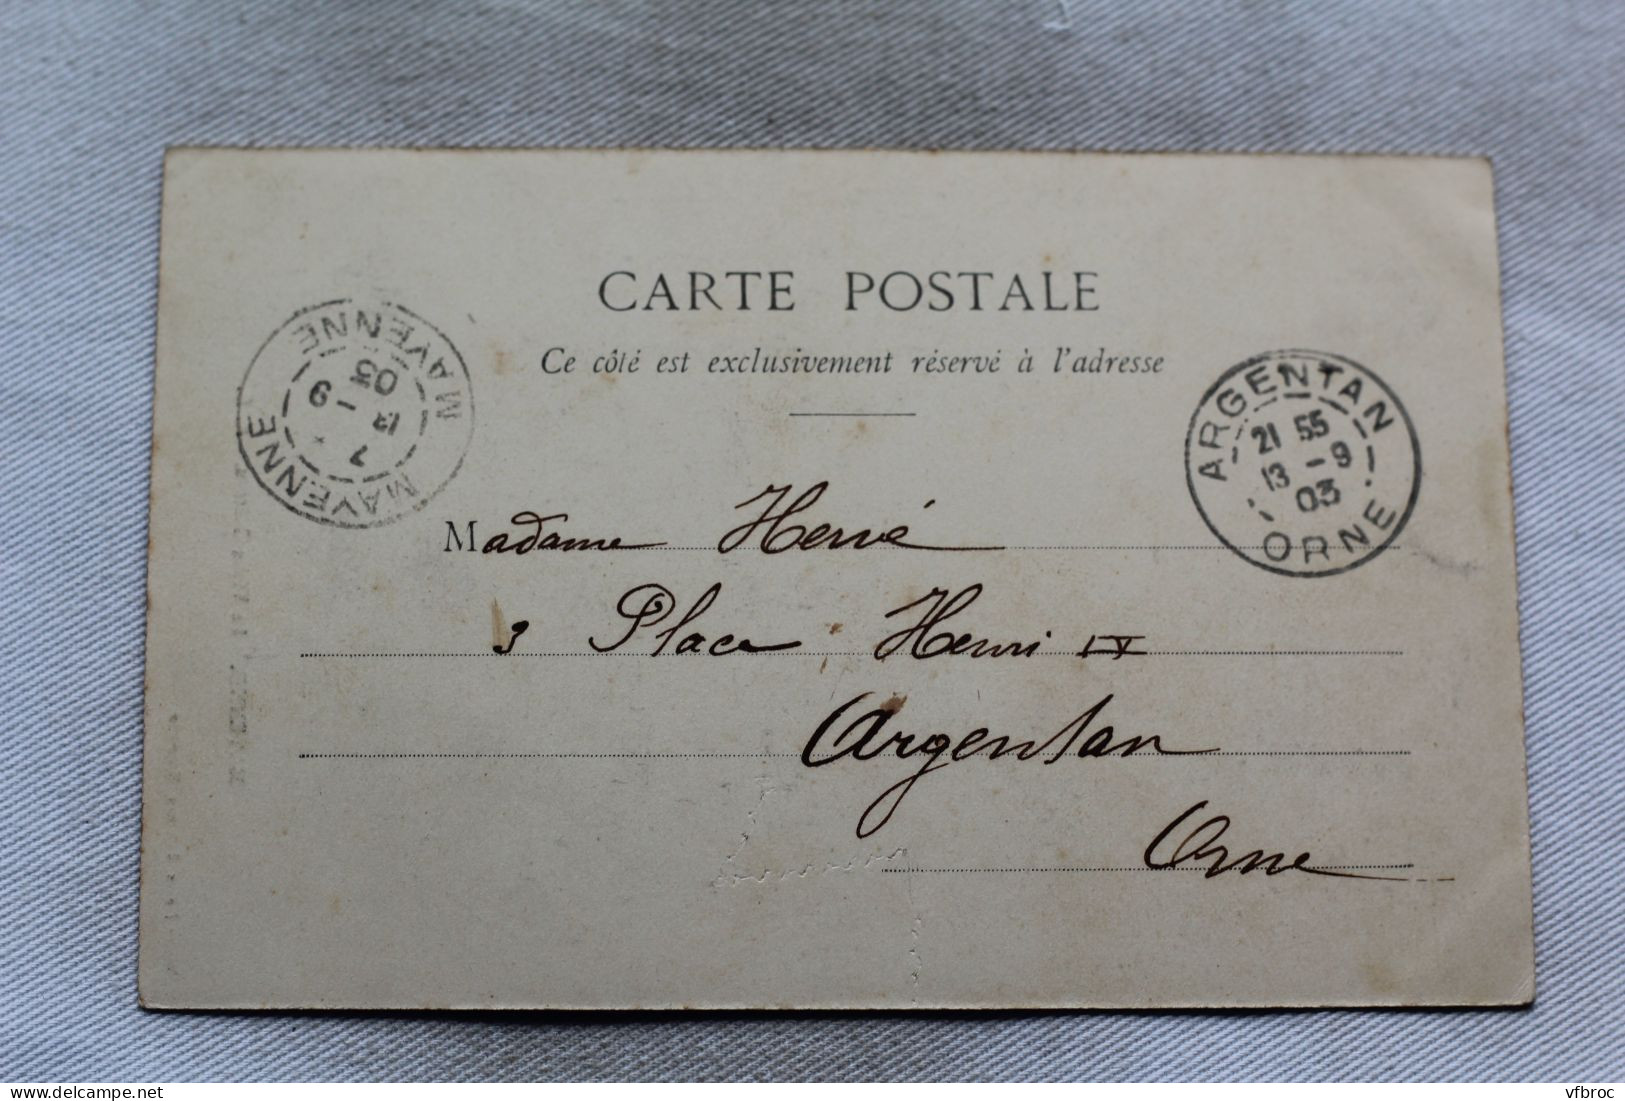 CARTE POSTALE
Ce côté est exclusivement réservé à l'adresse
MAYENNE
7
13 - 9
03
MAYENNE
ARGENTAN
21 55
13 - 9
03
ORNE
Madame Hervé
3 Place Henri IV
Argentan
Orne
vfbroc